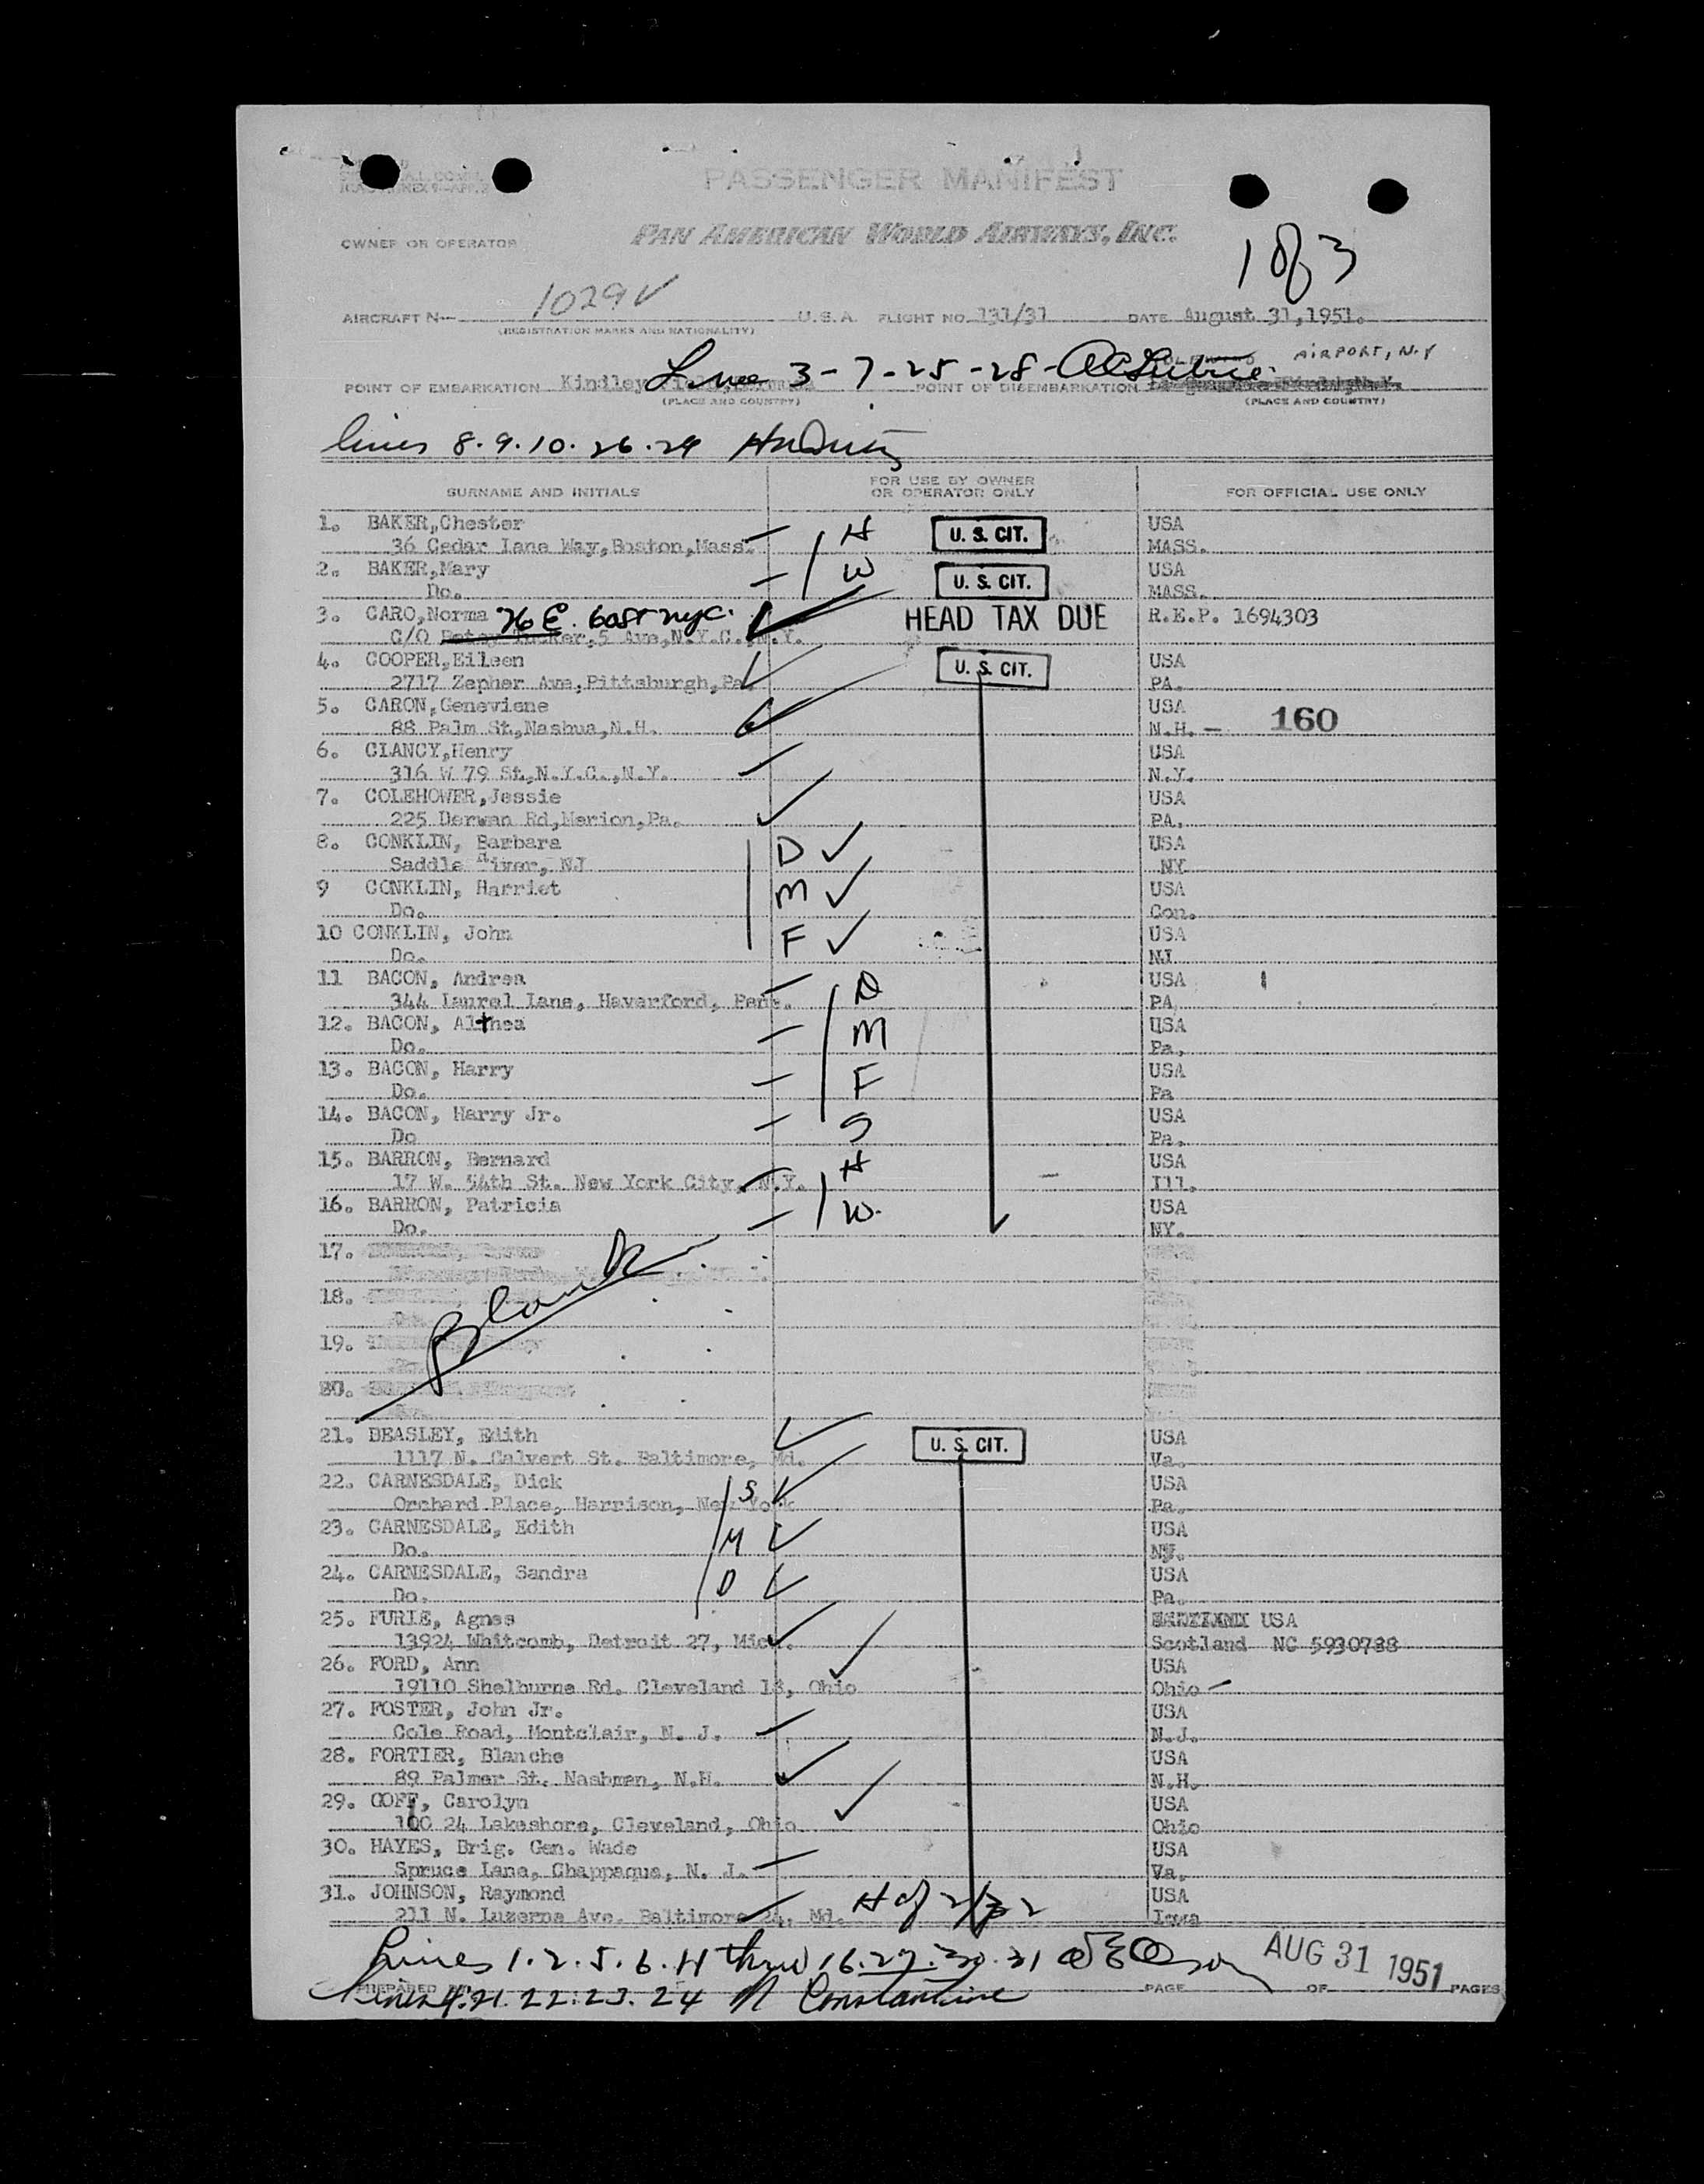 PASSENGER MANIFEST
OWNER OR OPERATOR PAN AMERICAN WORLD AIRWAYS, INC.
1 of 3
1029V
AIRCRAFT N— U.S.A. FLIGHT NO. 131/31 DATE August 31,1951.
(REGISTRATION MARKS AND NATIONALITY)
AIRPORT, N.Y
3-7-25-28-
POINT OF EMBARKATION Kindley Field, POINT OF DISEMBARKATION
(PLACE AND COUNTRY) (PLACE AND COUNTRY)
lines 8.9.10.26.29
SURNAME AND INITIALS FOR USE BY OWNER OR OPERATOR ONLY FOR OFFICIAL USE ONLY
1. BAKER,Chester H U. S. CIT. USA
36 Cedar Lane Way,Boston,Mass. MASS.
2. BAKER,Mary W U. S. CIT. USA
Do. MASS.
3. CARO,Norma 76 E. 60st nyc. HEAD TAX DUE R.E.P. 1694303
C/O Betsy Tucker,5 Ave,N.Y.C.,N.Y.
4. COOPER,Eileen U. S. CIT. USA
2717 Zepher Ave,Pittsburgh,Pa. PA.
5. CARON,Geneviene USA
88 Palm St,Nashua,N.H. N.H. — 160
6. CLANCY,Henry USA
316 W 79 St,N.Y.C.,N.Y. N.Y.
7. COLEHOWER,Jessie USA
225 Derwen Rd,Merion,Pa. PA.
8. CONKLIN, Barbara D USA
Saddle River, NJ NY
9 CONKLIN, Harriet M USA
Do. Con.
10 CONKLIN, John F USA
Do. NJ
11 BACON, Andrea D USA
344 Laurel Lane, Haverford, Penn. PA
12. BACON, Althea M USA
Do. Pa.
13. BACON, Harry F USA
Do. Pa
14. BACON, Harry Jr. S USA
Do Pa.
15. BARRON, Bernard H USA
17 W. 54th St. New York City, N.Y. Ill.
16. BARRON, Patricia W. USA
Do. NY.
17.
18.
Blank
19.
20.
21. DEASLEY, Edith U. S. CIT. USA
1117 N. Calvert St. Baltimore, Md. Va.
22. CARNESDALE, Dick S USA
Orchard Place, Harrison, New York Pa.
23. CARNESDALE, Edith M USA
Do. NY.
24. CARNESDALE, Sandra D USA
Do. Pa.
25. FURIE, Agnes USA
13924 Whitcomb, Detroit 27, Mich. Scotland NC 5930788
26. FORD, Ann USA
19110 Shelburne Rd. Cleveland 18, Ohio Ohio
27. FOSTER, John Jr. USA
Cole Road, Montclair, N. J. N.J.
28. FORTIER, Blanche USA
89 Palmer St. Nashman, N.H. N.H.
29. GOFF, Carolyn USA
100 24 Lakeshore, Cleveland, Ohio Ohio
30. HAYES, Brig. Gen. Wade USA
Spruce Lane, Chappaqua, N. J. Va.
31. JOHNSON, Raymond H of 2/32 USA
211 N. Luzerne Ave. Baltimore 24, Md. Iowa
Lines 1.2.5.6.11 thru 16.27.30.31 AUG 31 1951
PREPARED PAGE OF PAGES
lines 4.21.22.23.24 Constantine